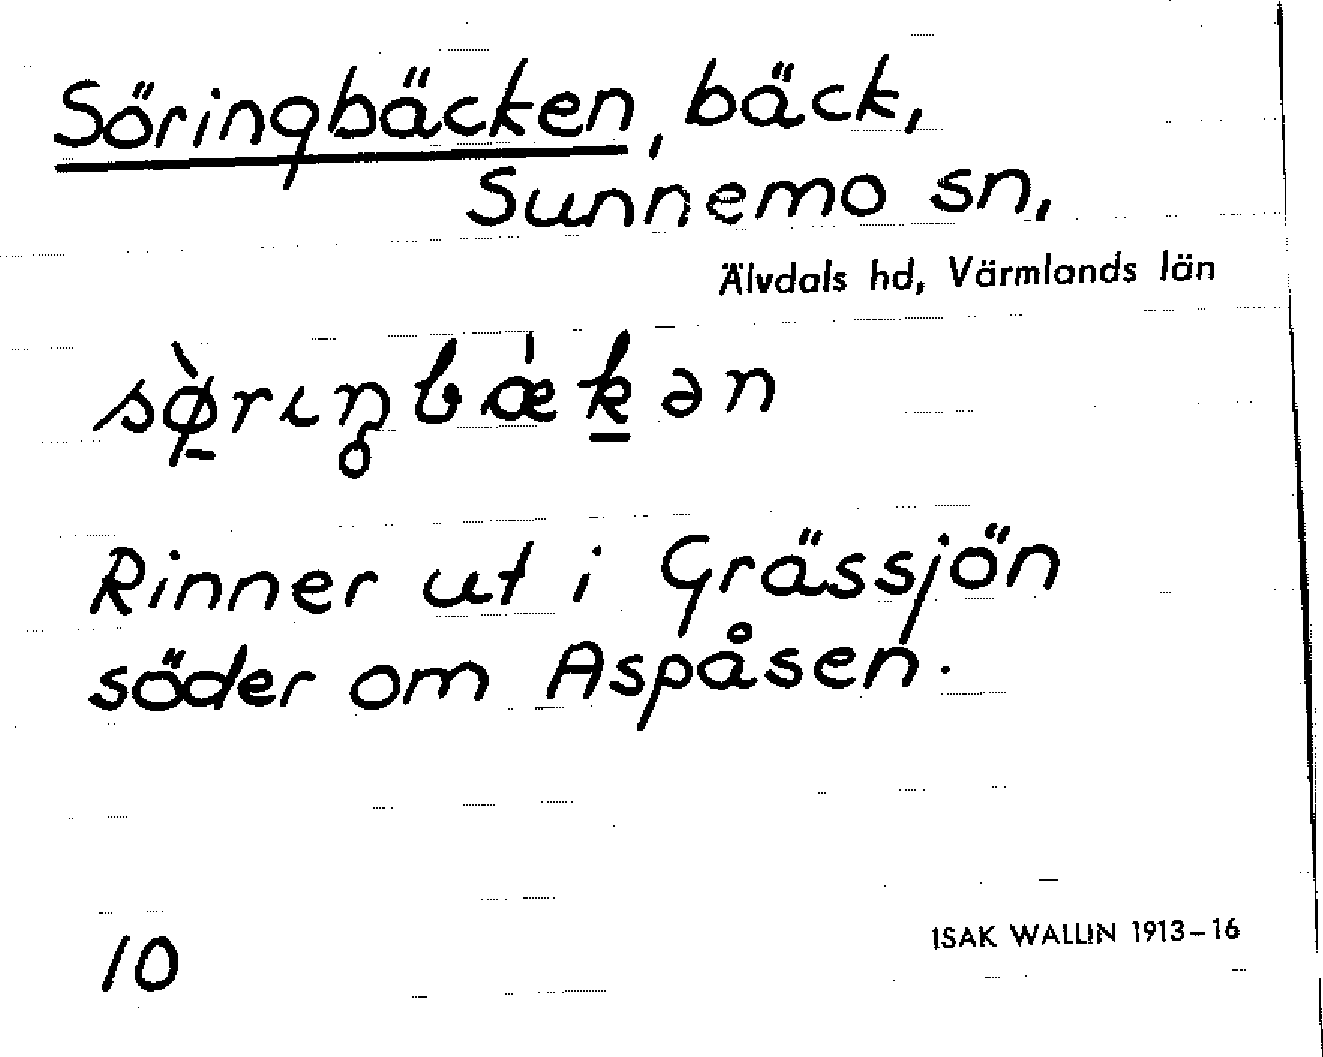 Söringbäcken, bäck,
Sunnemo sn,
Älvdals hd, Värmlands län
sø̠̀rɩŋbæ̍k̠ən
Rinner ut i Grässjön
söder om Aspåsen.
10
ISAK WALLIN 1913-16